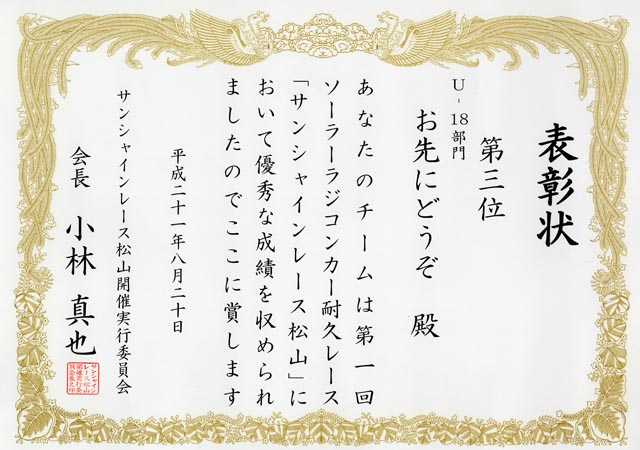 表彰状
第三位
U-18部門
お先にどうぞ 殿
あなたのチームは第一回
ソーラーラジコンカー耐久レース
「サンシャインレース松山」に
おいて優秀な成績を収められ
ましたのでここに賞します
平成二十一年八月二十日
サンシャインレース松山開催実行委員会
会長 小林 真也
サンシャイン
レース松山
開催実行委
員会会長之印